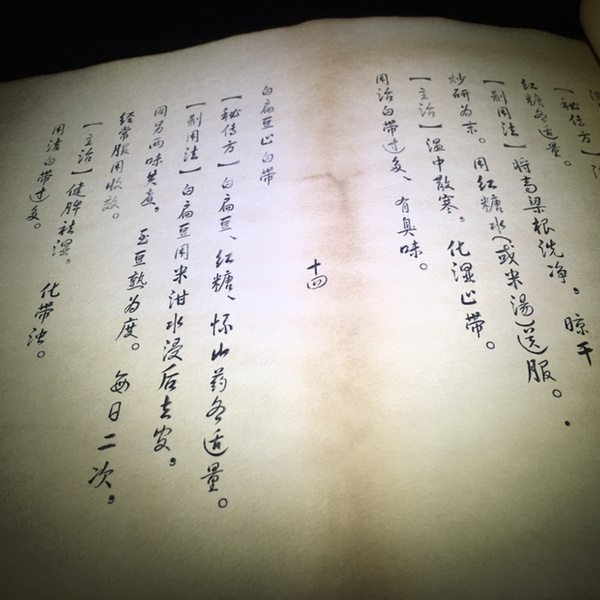 【秘传方】
红糖各适量。
【制用法】将高粱根洗净。晾干
炒研为末。用红糖水(或米汤)送服。
【主治】温中散寒。化湿止带。
用治白带过多、有臭味。
十四
白扁豆止白带
【秘传方】白扁豆、红糖、怀山药各适量。
【制用法】白扁豆用米泔水浸后去皮。
同另两味共煮。至豆熟为度。每日二次。
经常服用收效。
【主治】健脾祛湿。化带浊。
用治白带过多。